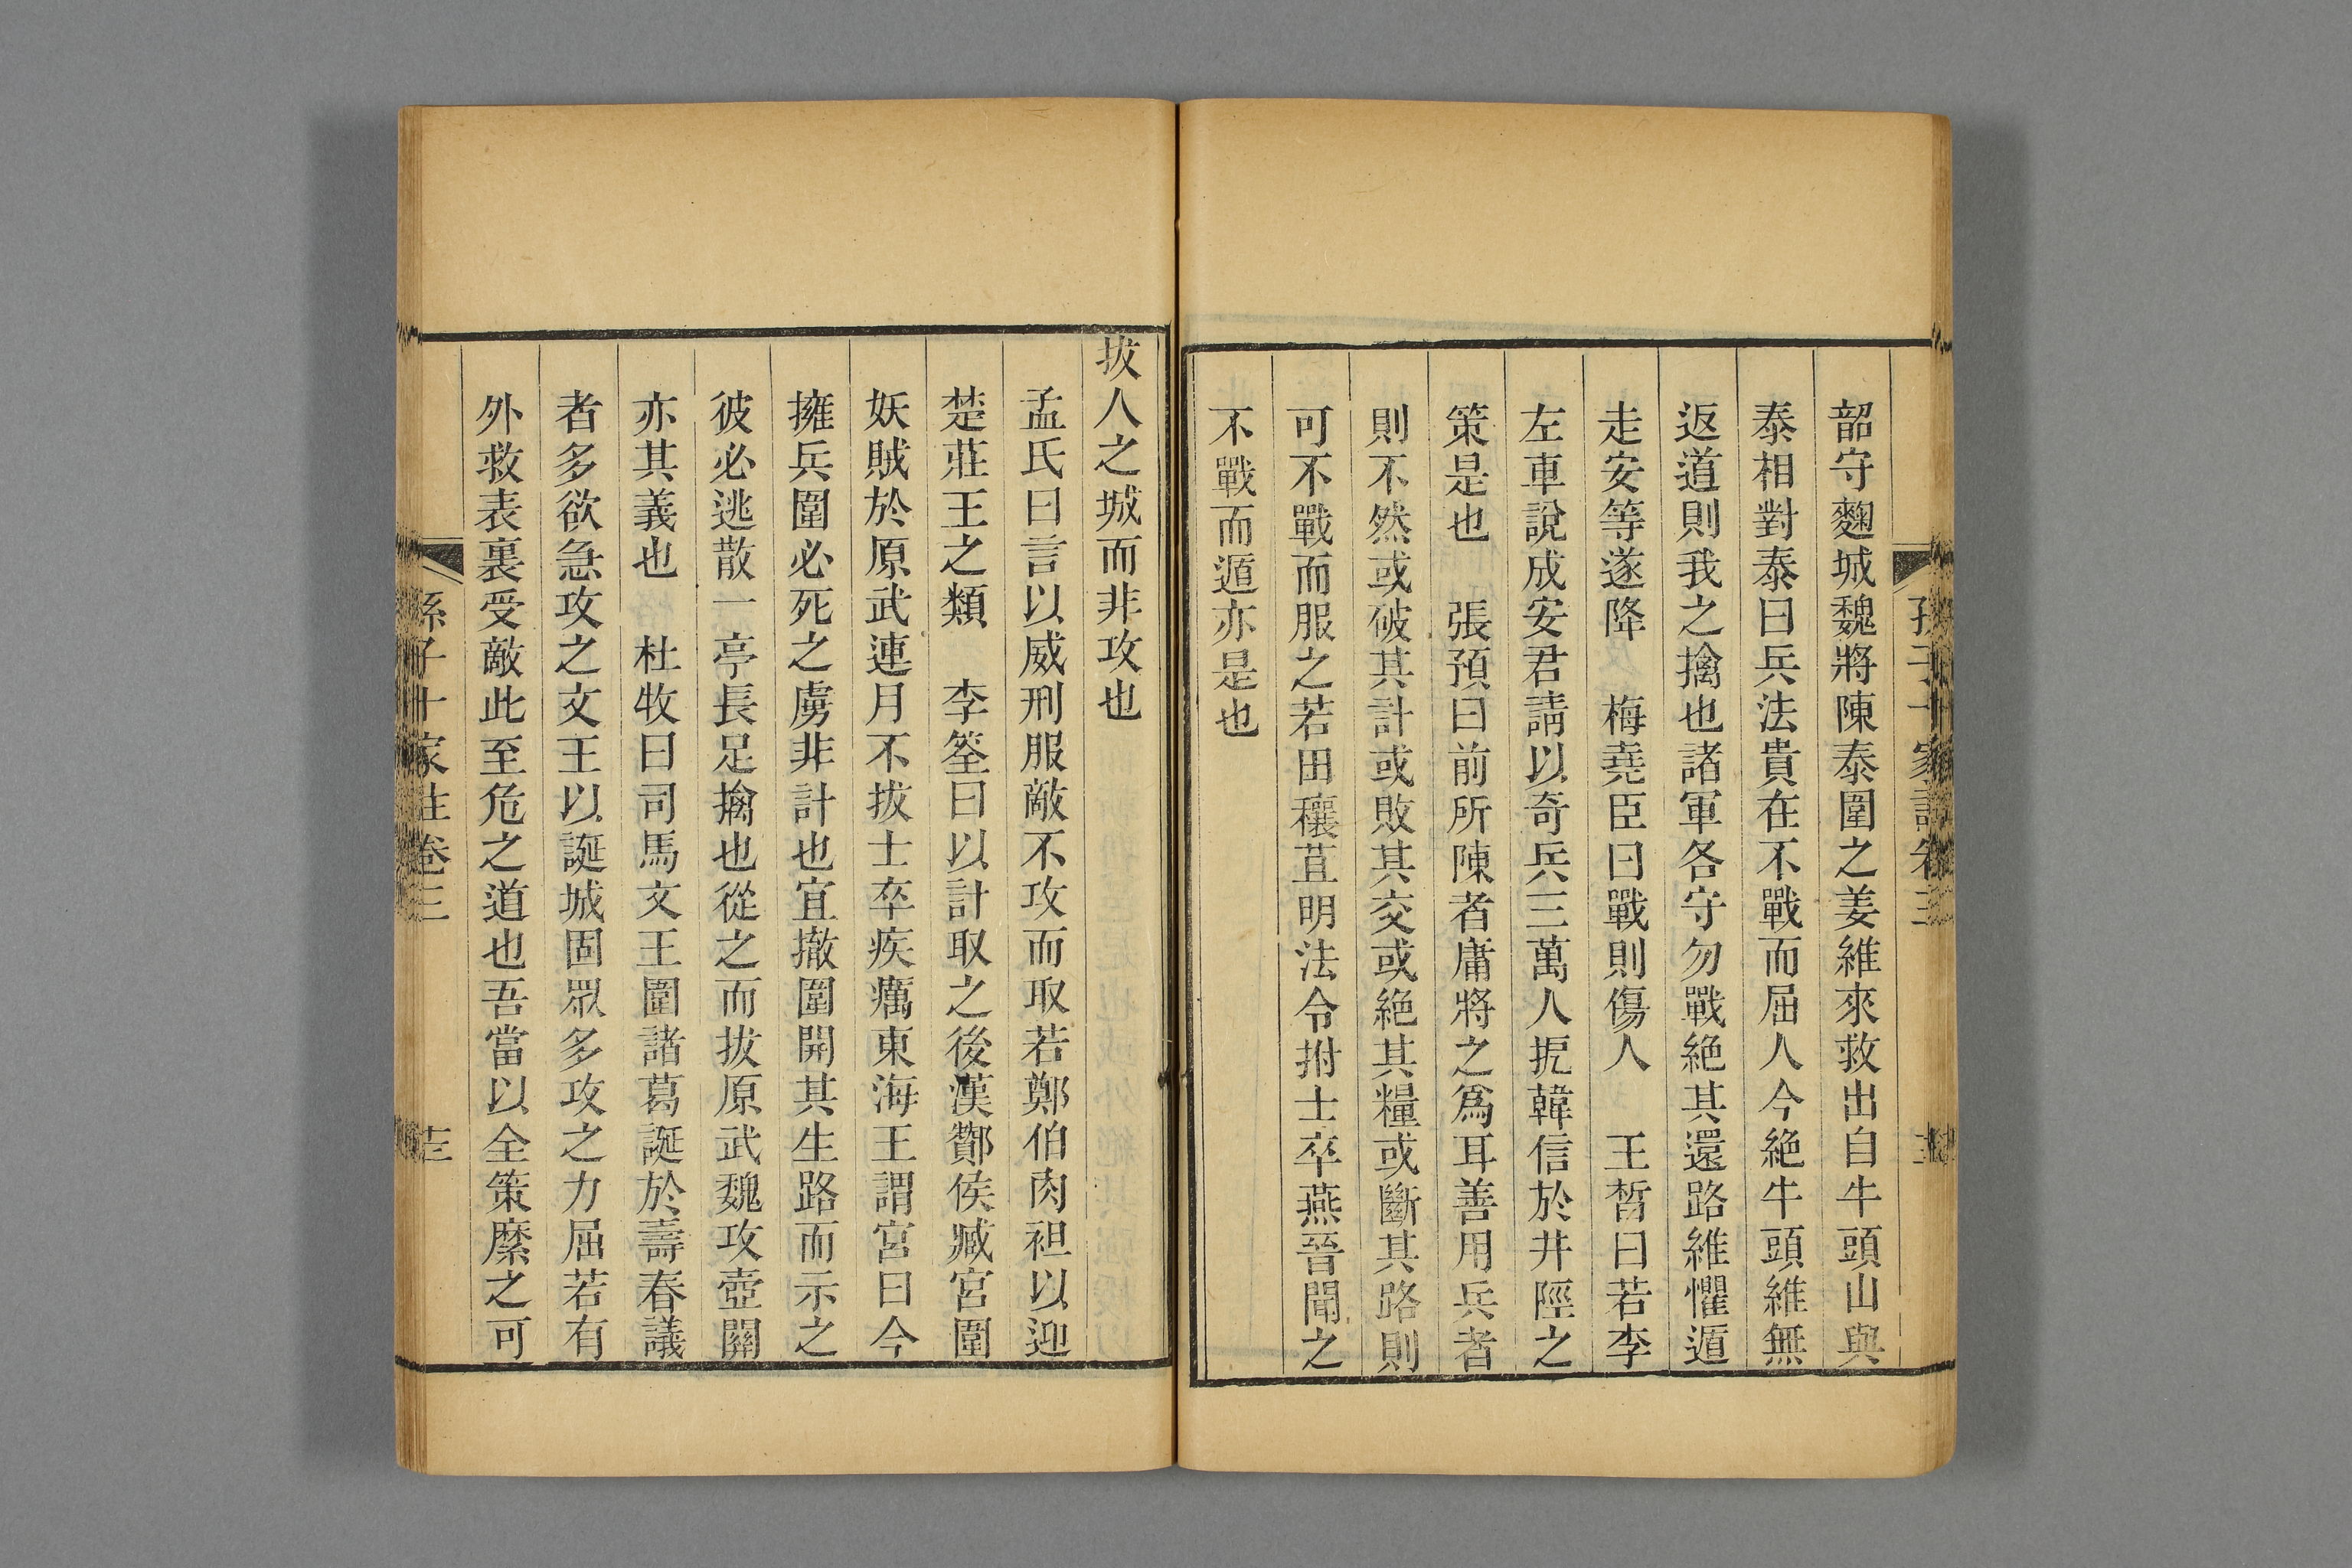 韶守麴城魏將陳泰圍之姜維來救出自牛頭山與
泰相對泰曰兵法貴在不戰而屈人今絶牛頭維無
返道則我之擒也諸軍各守勿戰絶其還路維懼遁
走安等遂降 梅堯臣曰戰則傷人 王晳曰若李
左車說成安君請以奇兵三萬人扼韓信於井陘之
策是也 張預曰前所陳者庸將之爲耳善用兵者
則不然或破其計或敗其交或絶其糧或斷其路則
可不戰而服之若田穰苴明法令拊士卒燕晉聞之
不戰而遁亦是也
拔人之城而非攻也
孟氏曰言以威刑服敵不攻而取若鄭伯肉袒以迎
楚莊王之類 李筌曰以計取之後漢酇侯臧宮圍
妖賊於原武連月不拔士卒疾癘東海王謂宮曰今
擁兵圍必死之虜非計也宜撤圍開其生路而示之
彼必逃散一亭長足擒也從之而拔原武魏攻壺關
亦其義也 杜牧曰司馬文王圍諸葛誕於壽春議
者多欲急攻之文王以誕城固眾多攻之力屈若有
外救表裏受敵此至危之道也吾當以全策縻之可
孫子十家註卷三
十三